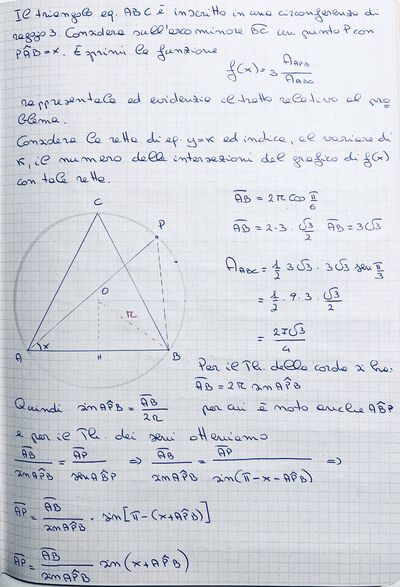 Il triangolo eq. ABC è inscritto in una circonferenza di
raggio 3. Considera sull'arco minore BC un punto P con
PÂB = x. Esprimi la funzione
f(x) = 3 A_APB / A_ABC
rappresentala ed evidenzia il tratto relativo al pro
blema.
Considera la retta di eq. y=k ed indica, al variare di
k, il numero delle intersezioni del grafico di f(x)
con tale retta.
C
P
O
r
A
x
H
B
AB = 2r cos π/6
AB = 2·3·√3/2 AB = 3√3
A_ABC = 1/2 3√3 · 3√3 sen π/3
= 1/2 · 9 · 3 √3/2
= 27√3/4
Per il Th. della corda si ha:
AB = 2r sin AP̂B
Quindi sin AP̂B = AB/2r per cui è noto anche AB̂P
e per il Th. dei seni otteniamo
AB/sin AP̂B = AP/sin AB̂P ⇒ AB/sin AP̂B = AP/sin(π-x-AP̂B) ⇒
AP = AB/sin AP̂B · sin[π-(x+AP̂B)]
AP = AB/sin AP̂B sin(x+AP̂B)